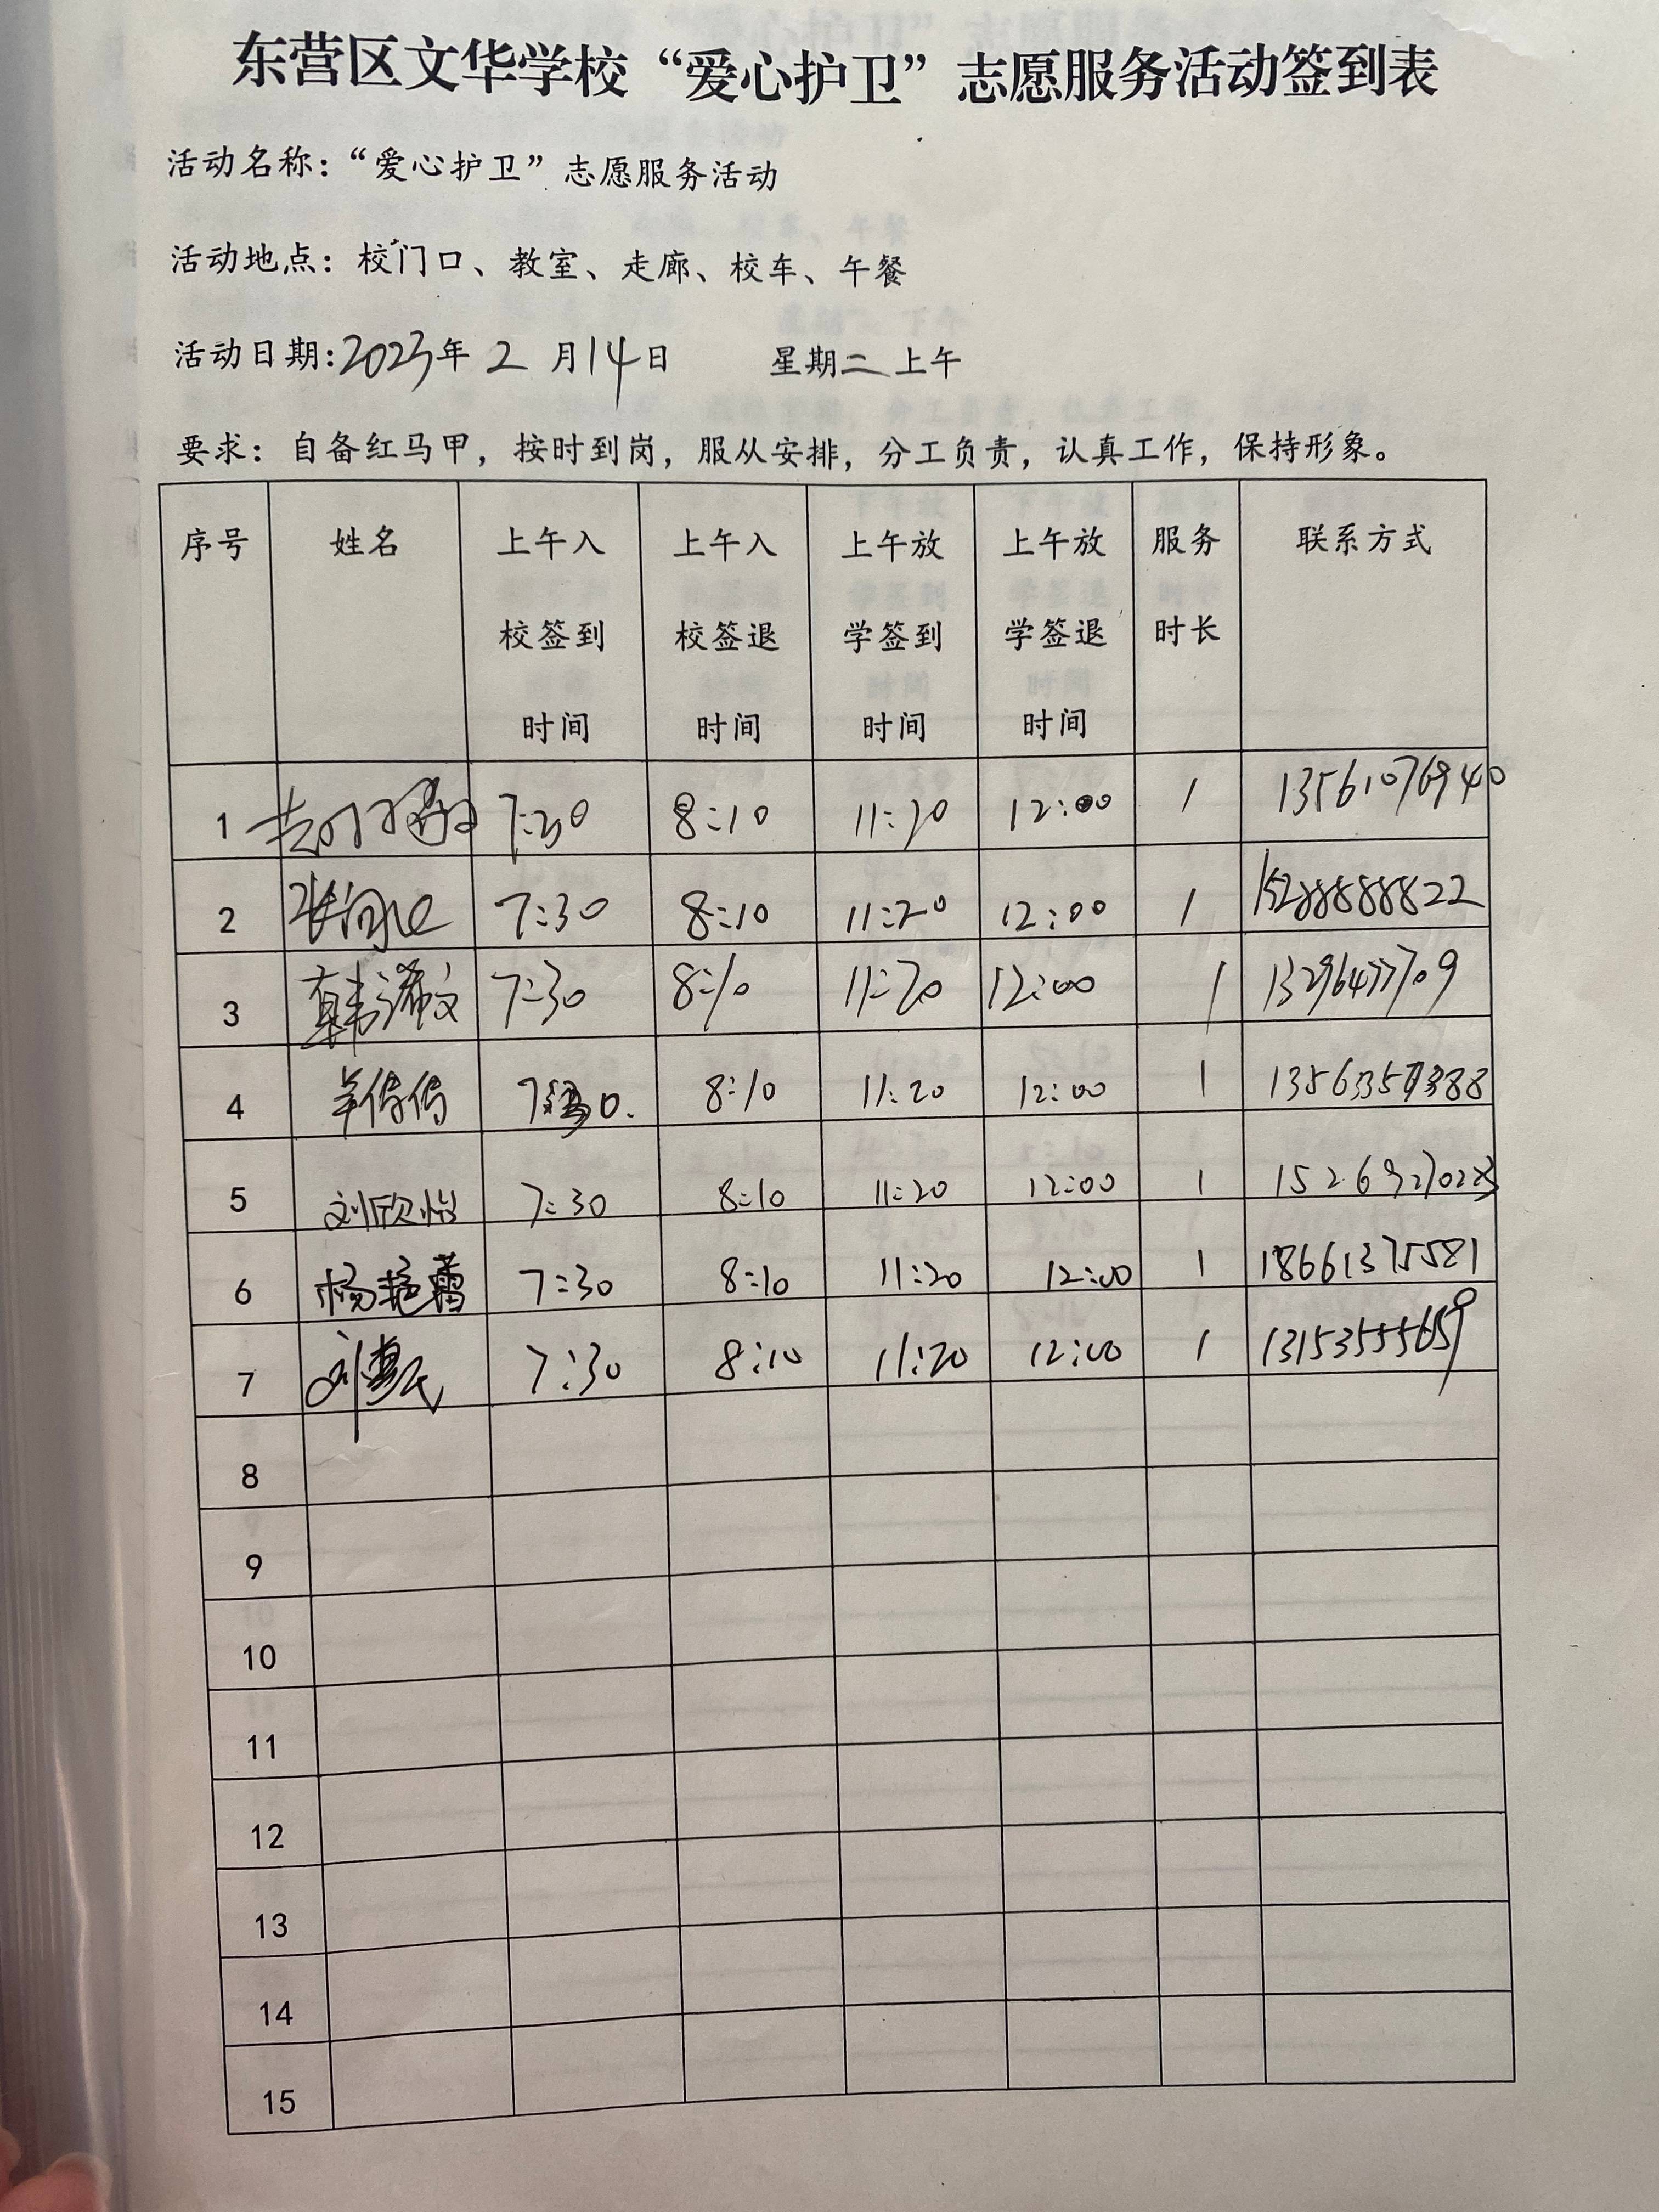 东营区文华学校“爱心护卫”志愿服务活动签到表
活动名称：“爱心护卫”志愿服务活动
活动地点：校门口、教室、走廊、校车、午餐
活动日期：2023年 2 月14日 星期二 上午
要求：自备红马甲，按时到岗，服从安排，分工负责，认真工作，保持形象。
序号 姓名 上午入校签到时间 上午入校签退时间 上午放学签到时间 上午放学签退时间 服务时长 联系方式
1 7:30 8:10 11:20 12:00 1 13561076940
2 7:30 8:10 11:20 12:00 1 15288888822
3 韩潇文 7:30 8:10 11:20 12:00 1
4 7:30 8:10 11:20 12:00 1
5 刘欣怡 7:30 8:10 11:20 12:00 1
6 杨艳蕾 7:30 8:10 11:20 12:00 1 18661375581
7 7:30 8:10 11:20 12:00 1 13153555659
8
9
10
11
12
13
14
15